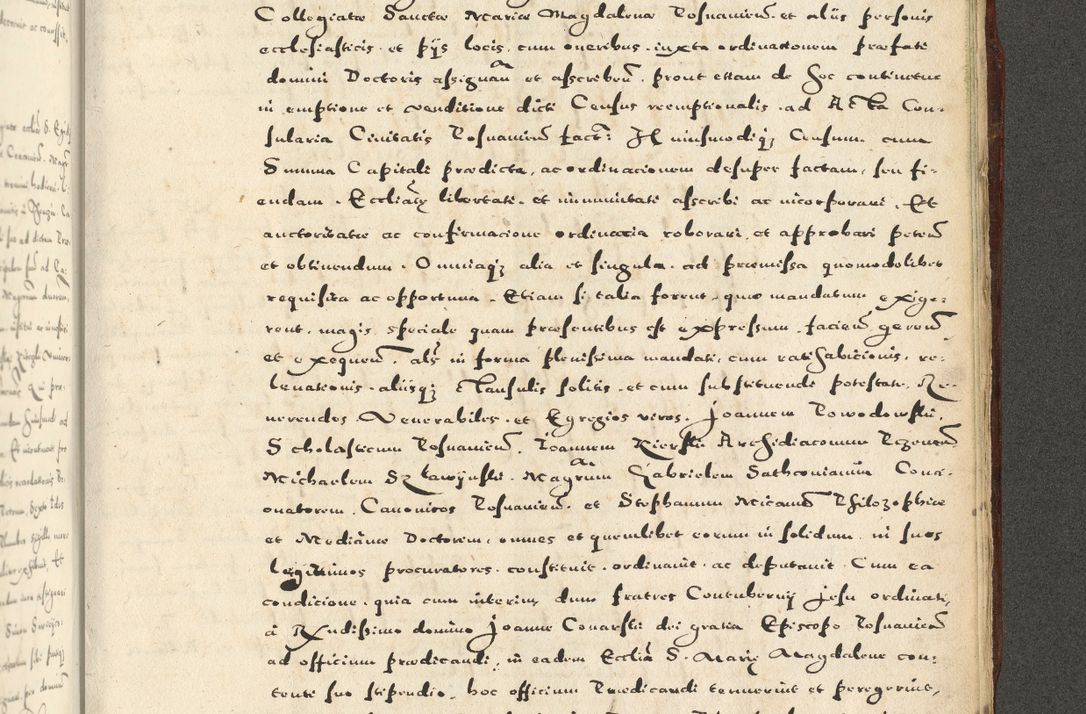 Collegiatæ Sanctæ Mariæ Magdalenæ Posnanien̄. et aliis personis
ecclesiasticis et pijs locis, cum oneribus iuxta ordinationem præfati
domini Doctoris assignan̄ et ascriben̄, prout etiam de hoc continetur
in emptione et venditione dicti Census reemptionalis ad Acta Con-
sularia Civitatis Posnanien̄ fact: Huiusmodiq; Censum cum
Summa Capitali prædicta, ac ordinacionem desuper factam, seu fi-
endam, Eccliasticæ libertati et immunitati asscribi ac incorporari. Et
auctoritate ac confirmacione ordinaria roborari, et approbari peten̄
et obtinendum. Omniaq; alia et singula ad præmissa quomodolibet
requisita ac opportuna. Etiam si talia forent, quæ mandatum exige-
rent, magis speciale quam præsentibus est expressum, facien̄ geren̄
et exequen̄. als in forma plenissima mandati, cum ratihabicionis, re-
levationis, aliisq; Clausulis solitis, et cum substituendi potestate. Re-
verendos Venerabiles et Egregios viros, Joannem Powodowski,
Scholasticum Posnanien̄, Joannem Kierski Archidiaconum Pczeuen̄
Michaelem Sklawynski, Magrum Gabrielem Sathconianum Conci-
onatorem, Canonicos Posnanien̄, et Stephanum Micanū Philozophiæ
et Medicinæ Doctorem, omnes et quemlibet eorum in solidum, in suos
legittimos procuratores constituit, ordinauit ac deputauit. Cum ea
condicione, quia cum interim dum fratres Contubernij Jesu ordinati,
à Rx̄ndissimo domino Joanne Conarski dei gratia Episcopo Posnanien̄
ad officium prædicandi, in eadem Ecclīa S. Mariæ Magdalene con-
tenti suo stipendio, hoc officium Prædicandi tenuerint et peregerint,